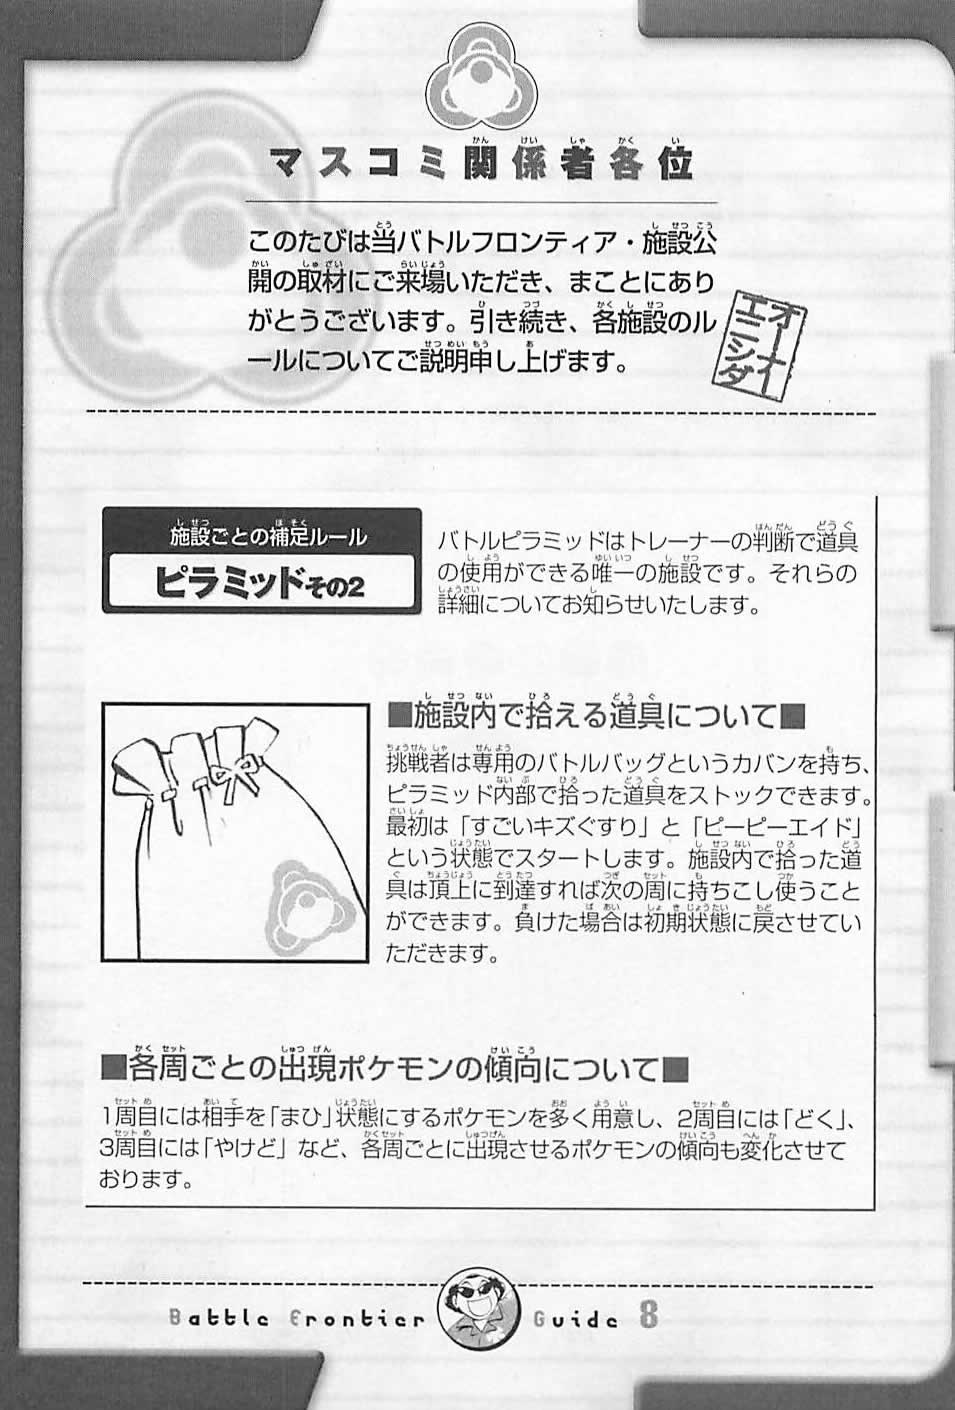 マスコミ関係者各位
このたびは当バトルフロンティア・施設公
開の取材にご来場いただき、まことにあり
がとうございます。引き続き、各施設のル
ールについてご説明申し上げます。
オーナー
エニシダ
施設ごとの補足ルール
ピラミッドその2
バトルピラミッドはトレーナーの判断で道具
の使用ができる唯一の施設です。それらの
詳細についてお知らせいたします。
■施設内で拾える道具について■
挑戦者は専用のバトルバッグというカバンを持ち、
ピラミッド内部で拾った道具をストックできます。
最初は「すごいキズぐすり」と「ピーピーエイド」
という状態でスタートします。施設内で拾った道
具は頂上に到達すれば次の周に持ちこし使うこと
ができます。負けた場合は初期状態に戻させてい
ただきます。
■各周ごとの出現ポケモンの傾向について■
1周目には相手を「まひ」状態にするポケモンを多く用意し、2周目には「どく」、
3周目には「やけど」など、各周ごとに出現させるポケモンの傾向も変化させて
おります。
Battle Frontier Guide 8